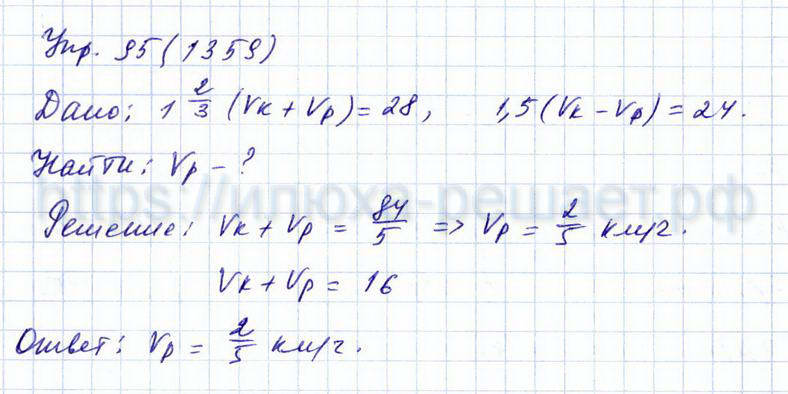 Упр. 95 (1359)
Дано: 1 2/3 (Vк + Vр) = 28, 1,5 (Vк - Vр) = 24.
Найти: Vр - ?
https://илюха-решает.рф
Решение: Vк + Vр = 84/5 => Vр = 2/5 км/ч.
Vк + Vр = 16
Ответ: Vр = 2/5 км/ч.